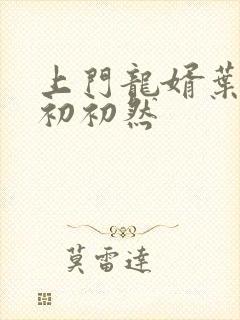 上門龍婿葉
初初然
莫雷達